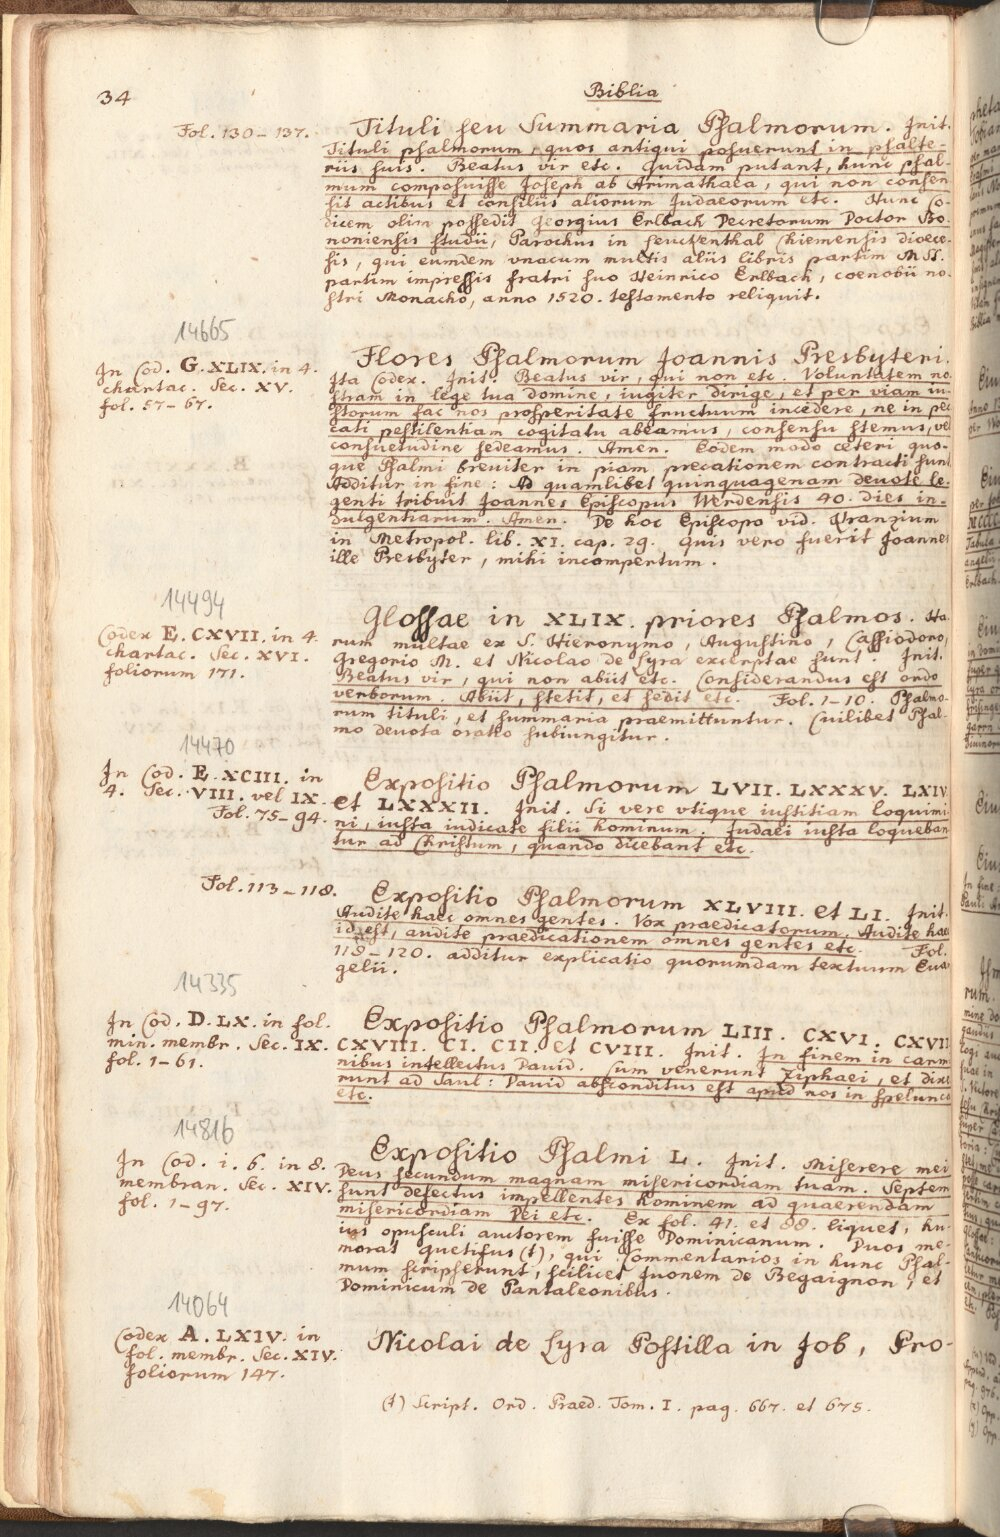 34
Biblia
Fol. 130–137.
Tituli seu Summaria Psalmorum. Init.
Tituli psalmorum, quos antiqui posuerunt in psalte-
riis suis. Beatus vir etc. Quidam putant, hunc psal-
mum composuisse Joseph ab Arimathaea, qui non consen
sit actibus et consiliis aliorum Judaeorum etc. Hunc Co-
dicem olim possedit Georgius Erlbach Decretorum Doctor Bo-
noniensis studii, Parochus in Feuchtenthal Chiemensis dioece-
sis, qui eumdem vnacum multis aliis libris partim MSS.
partim impressis fratri suo Heinrico Erlbach, coenobii no-
stri Monacho, anno 1520. testamento reliquit.
14665
In Cod. G. XLIX. in 4.
chartac. Sec. XV.
fol. 57–67.
Flores Psalmorum Joannis Presbyteri.
Ita Codex. Init. Beatus vir, qui non etc. Voluntatem no
stram in lege tua domine, iugiter dirige, et per viam iu-
storum fac nos prosperitate fructuum incedere, ne in pec
cati pestilentiam cogitatu abeamus, consensu stemus, vel
consuetudine sedeamus. Amen. Eodem modo ceteri quo-
que Psalmi breuiter in piam precationem contracti sunt.
Additur in fine: Ad quamlibet quinquagenam deuote le-
genti tribuit Joannes Episcopus Werdensis 40. dies in-
dulgentiarum. Amen. De hoc Episcopo vid. Kranzium
in Metropol. lib. XI. cap. 29. Quis vero fuerit Joannes
ille Presbyter, mihi incompertum.
14494
Codex E. CXVII. in 4.
chartac. Sec. XVI.
foliorum 171.
Glossae in XLIX. priores Psalmos. Ha-
rum multae ex S. Hieronymo, Augustino, Cassiodoro,
Gregorio M. et Nicolao de Lyra excerptae sunt. Init.
Beatus vir, qui non abiit etc. Considerandus est ordo
verborum. Abiit, stetit, et sedit etc. Fol. 1–10. Psalmo-
rum tituli, et summaria praemittuntur. Cuilibet Psal-
mo deuota oratio subiungitur.
14470
In Cod. E. XCIII. in
4. Sec. VIII. vel IX.
Fol. 75–94.
Expositio Psalmorum LVII. LXXXV. LXIV.
et LXXXII. Init. Si vere vtique iustitiam loquimi
ni, iusta iudicate filii hominum. Judaei iusta loqueban
tur ad Christum, quando dicebant etc.
Fol. 113–118.
Expositio Psalmorum XLVIII. et LI. Init.
Audite haec omnes gentes. Vox praedicatorum. Audite haec
id est, audite praedicationem omnes gentes etc. Fol.
118–120. additur explicatio quorumdam textuum Eua
gelii.
14335
In Cod. D. LX. in fol.
min. membr. Sec. IX.
fol. 1–61.
Expositio Psalmorum LIII. CXVI. CXVII
CXVIII. CI. CII. et CVIII. Init. In finem in carmi
nibus intellectus Dauid. Cum venerunt Ziphaei, et dixe
runt ad Saul: Dauid absconditus est apud nos in spelunca
etc.
14816
In Cod. i. 6. in 8.
membran. Sec. XIV.
fol. 1–97.
Expositio Psalmi L. Init. Miserere mei
Deus secundum magnam misericordiam tuam. Septem
sunt defectus impellentes hominem ad quaerendam
misericordiam Dei etc. Ex fol. 41. et 88. liquet, hu-
ius opusculi auctorem fuisse Dominicanum. Duos me-
morat Quetifus (t), qui Commentarios in hunc Psal-
mum scripserunt, scilicet Juonem de Begaignon, et
Dominicum de Pantaleonibus.
14064
Codex A. LXIV. in
fol. membr. Sec. XIV.
foliorum 147.
Nicolai de Lyra Postilla in Job, Pro-
(t) Script. Ord. Praed. Tom. I. pag. 667. et 675.